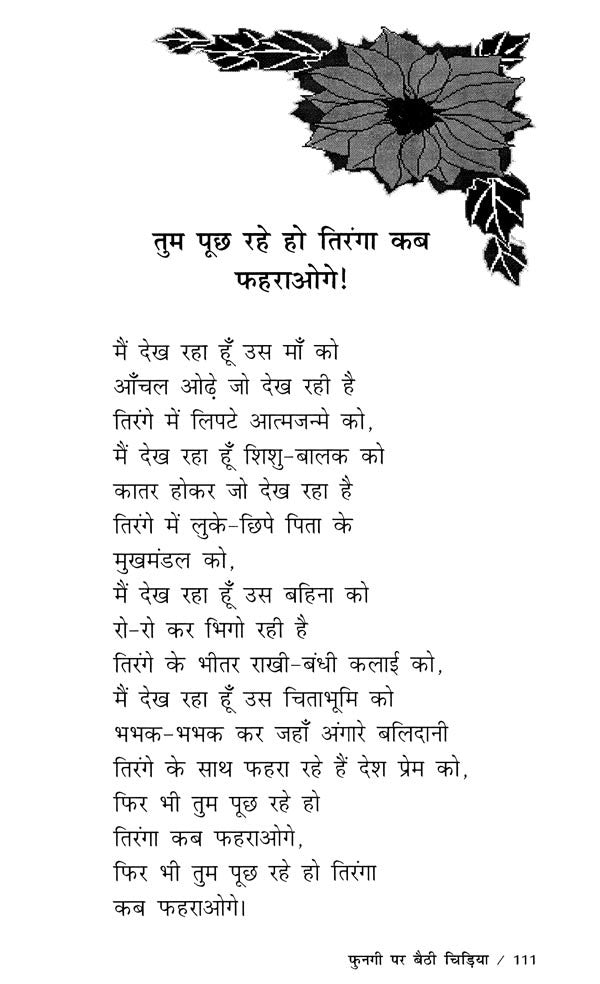 तुम पूछ रहे हो तिरंगा कब
फहराओगे!
मैं देख रहा हूँ उस माँ को
आँचल ओढ़े जो देख रही है
तिरंगे में लिपटे आत्मजन्मे को,
मैं देख रहा हूँ शिशु-बालक को
कातर होकर जो देख रहा है
तिरंगे में लुके-छिपे पिता के
मुखमंडल को,
मैं देख रहा हूँ उस बहिना को
रो-रो कर भिगो रही है
तिरंगे के भीतर राखी-बंधी कलाई को,
मैं देख रहा हूँ उस चिताभूमि को
भभक-भभक कर जहाँ अंगारे बलिदानी
तिरंगे के साथ फहरा रहे हैं देश प्रेम को,
फिर भी तुम पूछ रहे हो
तिरंगा कब फहराओगे,
फिर भी तुम पूछ रहे हो तिरंगा
कब फहराओगे।
फुनगी पर बैठी चिड़िया / 111